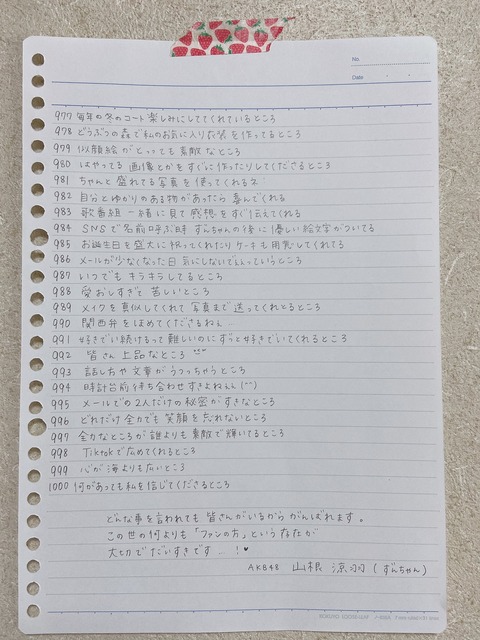 No.
Date
977 毎年の冬のコート楽しみにしててくれているところ
978 どうぶつの森で私のお気に入り衣装を作ってるところ
979 似顔絵がとっっても素敵なところ
980 はやってる画像とかをすぐに作ったりしてくださるところ
981 ちゃんと盛れてる写真を使ってくれるネ
982 自分とゆかりのある物があったら喜んでくれる
983 歌番組一緒に見て感想をすぐ伝えてくれる
984 SNSで名前呼ぶ時ずんちゃんの後に優しい絵文字がついてる
985 お誕生日を盛大に祝ってくれたりケーキも用意してくれてる
986 メールが少なくなった日気にしないでええっていうところ
987 いつでもキラキラしてるところ
988 愛おしすぎて苦しいところ
989 メイクを真似してくれて写真まで送ってくれるところ
990 関西弁をほめてくださるねぇ…
991 好きでい続けるって難しいのにずっと好きでいてくれるところ
992 皆さん上品なところ
993 話し方や文章がうつっちゃうところ
994 時計台前待ち合わせすきよねぇぇ(^^)
995 メールでの2人だけの秘密がすきなところ
996 どれだけ全力でも笑顔を忘れないところ
997 全力なところが誰よりも素敵で輝いてるところ
998 Tiktokで広めてくれるところ
999 心が海よりも広いところ
1000 何があっても私を信じてくださるところ
どんな事を言われても皆さんがいるからがんばれます。
この世の何よりも「ファンの方」というあなたが
大切でだいすきです…!♥
AKB48 山根 涼羽 (ずんちゃん)